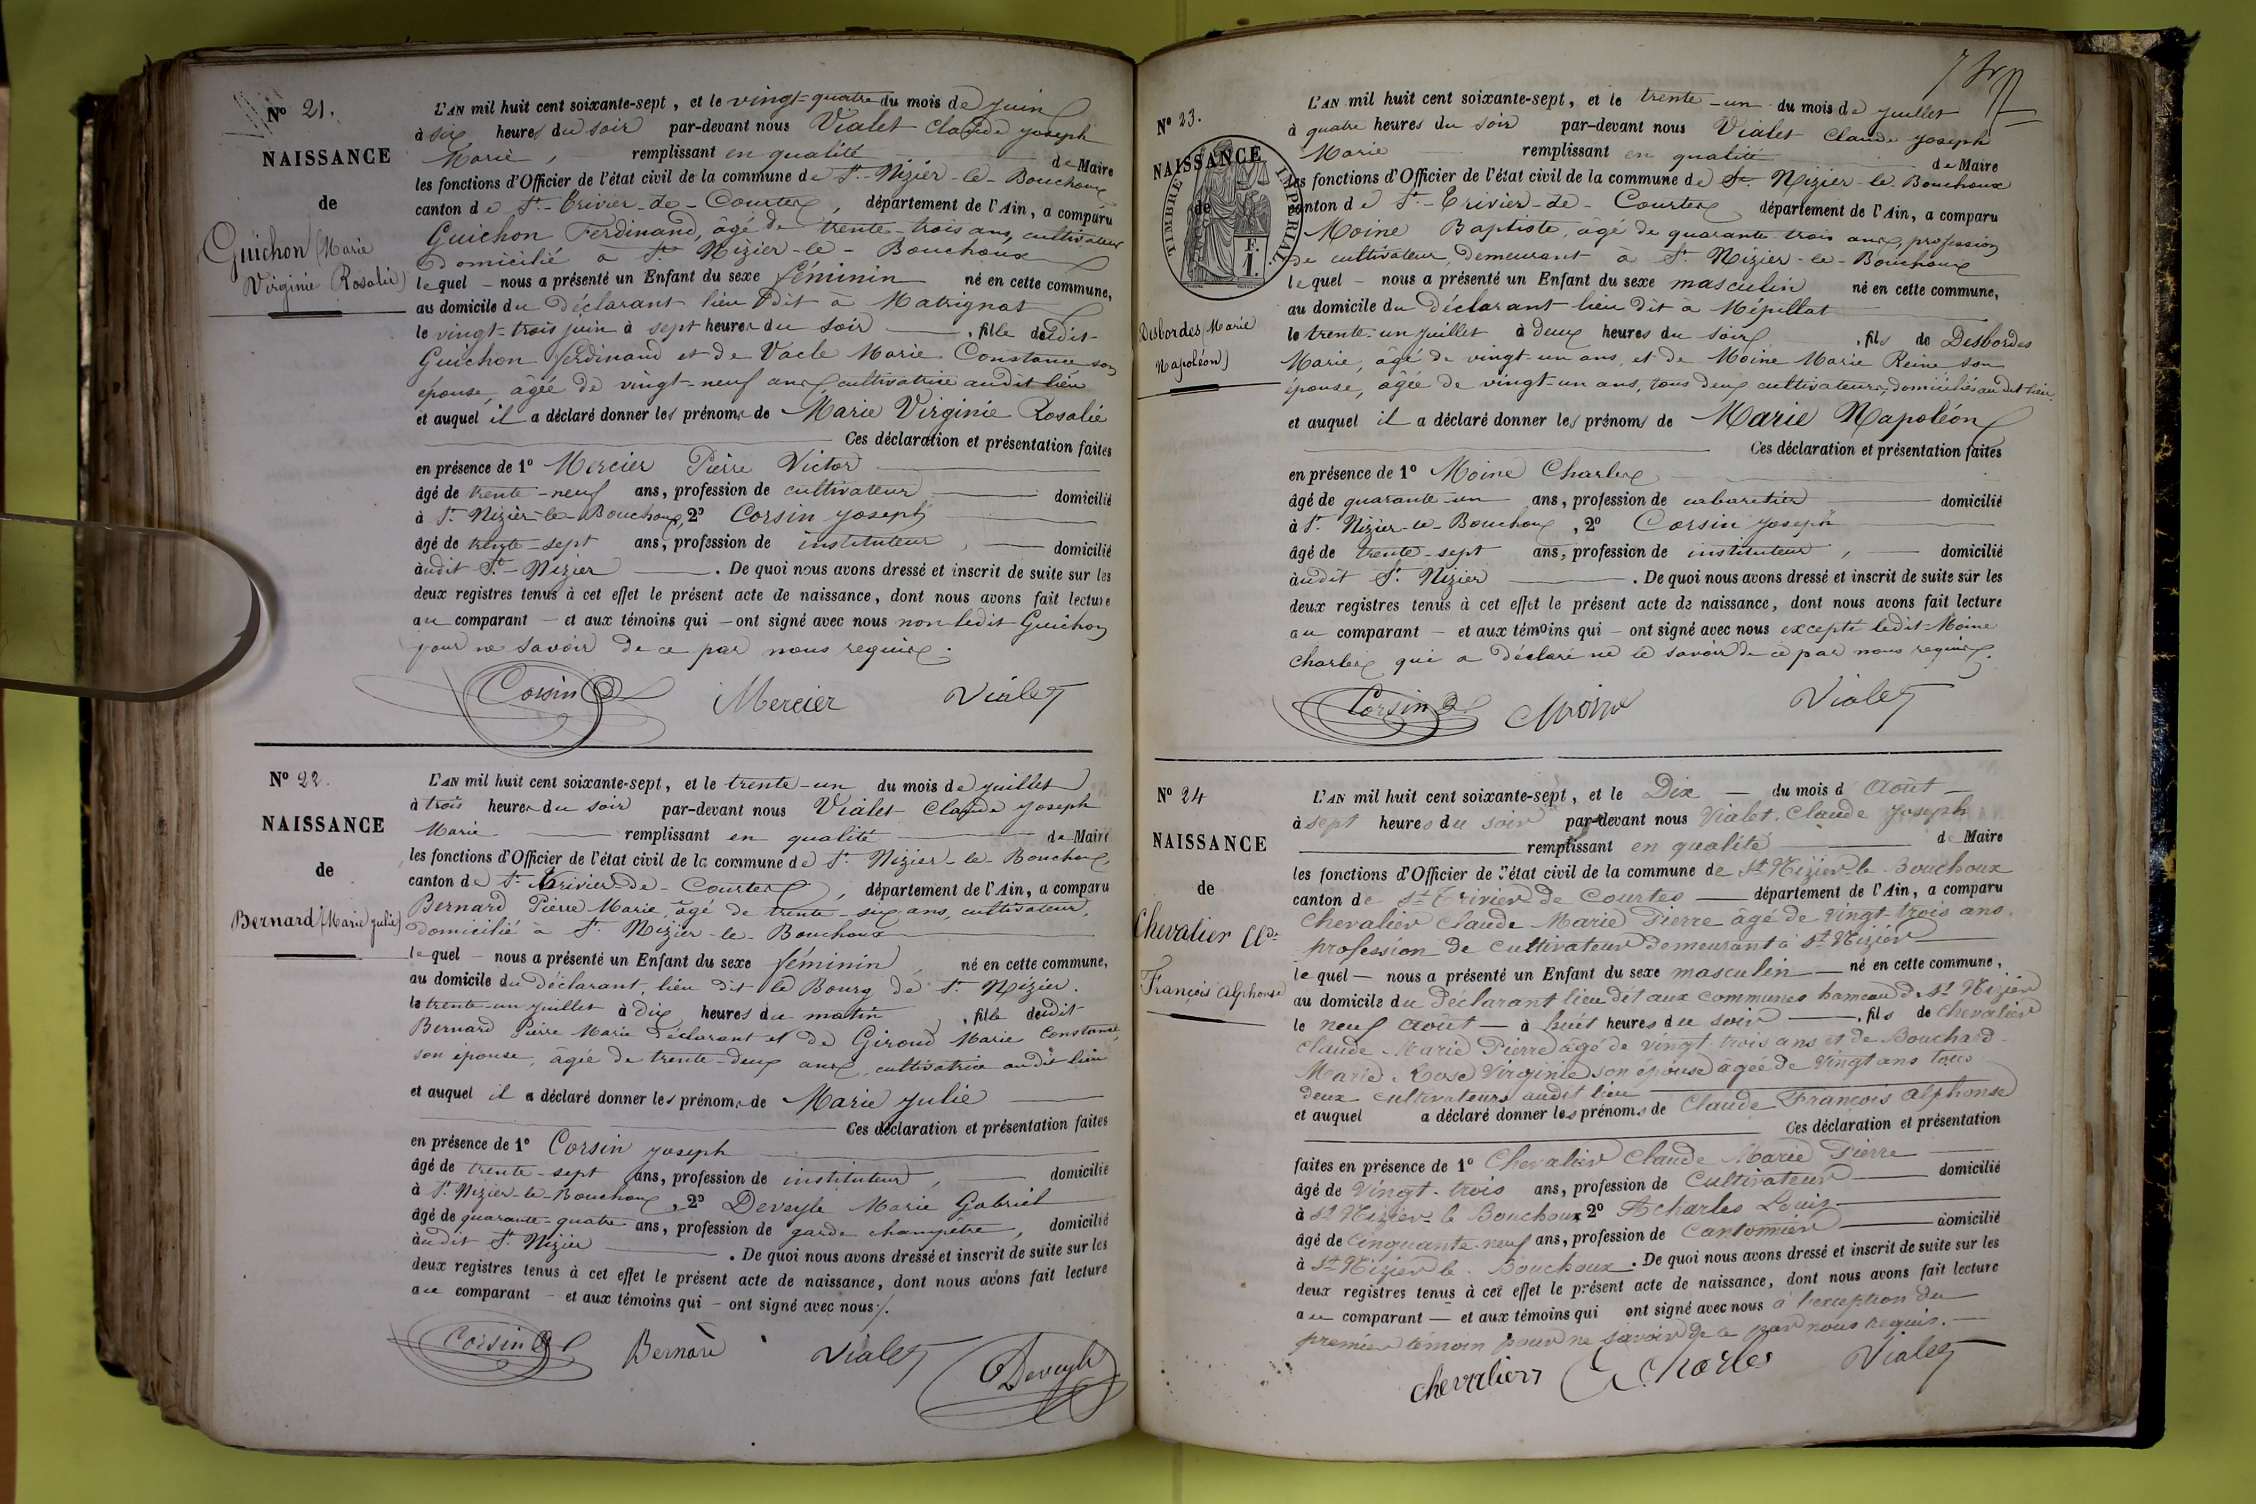 Nº 21.
NAISSANCE
de
Guichon (Marie
Virginie Rosalie)
L'AN mil huit cent soixante-sept, et le vingt-quatre du mois de juin
à six heures du soir par-devant nous Vialet Claude Joseph
Marie, remplissant en qualité de Maire
les fonctions d'Officier de l'état civil de la commune de St-Nizier-le-Bouchoux
canton de St-Trivier-de-Courtes, département de l'Ain, a comparu
Guichon Ferdinand, âgé de trente-trois ans, cultivateur
domicilié à St Nizier-le-Bouchoux
lequel – nous a présenté un Enfant du sexe féminin né en cette commune,
au domicile du déclarant lieu dit à Matrignat
le vingt-trois juin à sept heures du soir, fille dudit
Guichon ferdinand et de Vacle Marie Constance son
épouse, âgée de vingt-neuf ans, cultivatrice audit lieu
et auquel il a déclaré donner les prénoms de Marie Virginie Rosalie
Ces déclaration et présentation faites
en présence de 1º Mercier Pierre Victor
âgé de trente-neuf ans, profession de cultivateur domicilié
à St Nizier-le-Bouchoux, 2º Corsin Joseph
âgé de trente-sept ans, profession de instituteur, domicilié
audit St-Nizier. De quoi nous avons dressé et inscrit de suite sur les
deux registres tenus à cet effet le présent acte de naissance, dont nous avons fait lecture
au comparant – et aux témoins qui – ont signé avec nous non ledit Guichon
pour ne savoir de ce par nous requis.
Corsin Mercier Vialet
Nº 22.
NAISSANCE
de
Bernard (Marie Julie)
L'AN mil huit cent soixante-sept, et le trente-un du mois de juillet
à trois heures du soir par-devant nous Vialet Claude Joseph
Marie remplissant en qualité de Maire
les fonctions d'Officier de l'état civil de la commune de St Nizier-le-Bouchoux,
canton de St-Trivier-de-Courtes, département de l'Ain, a comparu
Bernard Pierre Marie, âgé de trente-six ans, cultivateur,
domicilié à St Nizier-le-Bouchoux
lequel – nous a présenté un Enfant du sexe féminin, né en cette commune,
au domicile du déclarant, lieu dit le Bourg de St Nizier.
le trente-un juillet à dix heures du matin, fille dudit
Bernard Pierre Marie déclarant et de Giroud Marie Constance,
son épouse, âgée de trente-deux ans, cultivatrice audit lieu
et auquel il a déclaré donner les prénoms de Marie Julie
Ces déclaration et présentation faites
en présence de 1º Corsin Joseph
âgé de trente-sept ans, profession de instituteur, domicilié
à St Nizier-le-Bouchoux, 2º Deveyle Marie Gabriel
âgé de quarante-quatre ans, profession de garde champêtre, domicilié
audit St Nizier. De quoi nous avons dressé et inscrit de suite sur les
deux registres tenus à cet effet le présent acte de naissance, dont nous avons fait lecture
au comparant – et aux témoins qui – ont signé avec nous
Corsin Bernard Vialet Deveyle
Nº 23.
NAISSANCE
de
TIMBRE IMPERIAL
F.
1.
Desbordes (Marie
Napoléon)
L'AN mil huit cent soixante-sept, et le trente-un du mois de juillet
à quatre heures du soir par-devant nous Vialet Claude Joseph
Marie remplissant en qualité de Maire
les fonctions d'Officier de l'état civil de la commune de St Nizier-le-Bouchoux
canton de St-Trivier-de-Courtes, département de l'Ain, a comparu
Moine Baptiste, âgé de quarante trois ans, profession
de cultivateur, demeurant à St Nizier-le-Bouchoux
lequel – nous a présenté un Enfant du sexe masculin né en cette commune,
au domicile du déclarant lieu dit à Mépillat
le trente-un juillet à deux heures du soir, fils de Desbordes
Marie, âgé de vingt-un ans, et de Moine Marie Reine son
épouse, âgée de vingt-un ans, tous deux cultivateurs, domiciliés audit lieu.
et auquel il a déclaré donner les prénoms de Marie Napoléon
Ces déclaration et présentation faites
en présence de 1º Moine Charles
âgé de quarante-un ans, profession de cabaretier domicilié
à St Nizier-le-Bouchoux, 2º Corsin Joseph
âgé de trente-sept ans, profession de instituteur, domicilié
audit St Nizier. De quoi nous avons dressé et inscrit de suite sur les
deux registres tenus à cet effet le présent acte de naissance, dont nous avons fait lecture
au comparant – et aux témoins qui – ont signé avec nous excepté ledit Moine
Charles qui a déclaré ne le savoir de ce par nous requis.
Corsin Moine Vialet
Nº 24
NAISSANCE
de
Chevalier Cl.de
François Alphonse
L'AN mil huit cent soixante-sept, et le Dix du mois d Août
à sept heures du soir par-devant nous Vialet, Claude Joseph
remplissant en qualité de Maire
les fonctions d'Officier de l'état civil de la commune de St Nizier le Bouchoux
canton de St Trivier de Courtes département de l'Ain, a comparu
Chevalier Claude Marie Pierre âgé de vingt-trois ans.
profession de cultivateur demeurant à St Nizier
lequel – nous a présenté un Enfant du sexe masculin né en cette commune,
au domicile du déclarant lieu dit aux communes hameau de St Nizier
le neuf Août à huit heures du soir, fils de Chevalier
Claude Marie Pierre âgé de vingt trois ans et de Bouchard
Marie Rose Virginie son épouse âgée de vingt ans tous
deux cultivateurs audit lieu
et auquel a déclaré donner les prénoms de Claude François Alphonse
Ces déclaration et présentation
faites en présence de 1º Chevalier Claude Marie Pierre
âgé de vingt-trois ans, profession de Cultivateur domicilié
à St Nizier-le Bouchoux 2º Acharles Louis
âgé de cinquante-neuf ans, profession de Cantonnier domicilié
à St Nizier le Bouchoux. De quoi nous avons dressé et inscrit de suite sur les
deux registres tenus à cet effet le présent acte de naissance, dont nous avons fait lecture
au comparant – et aux témoins qui ont signé avec nous à l'exception du
premier témoin pour ne savoir de ce par nous requis.
chevalier Acharles Vialet